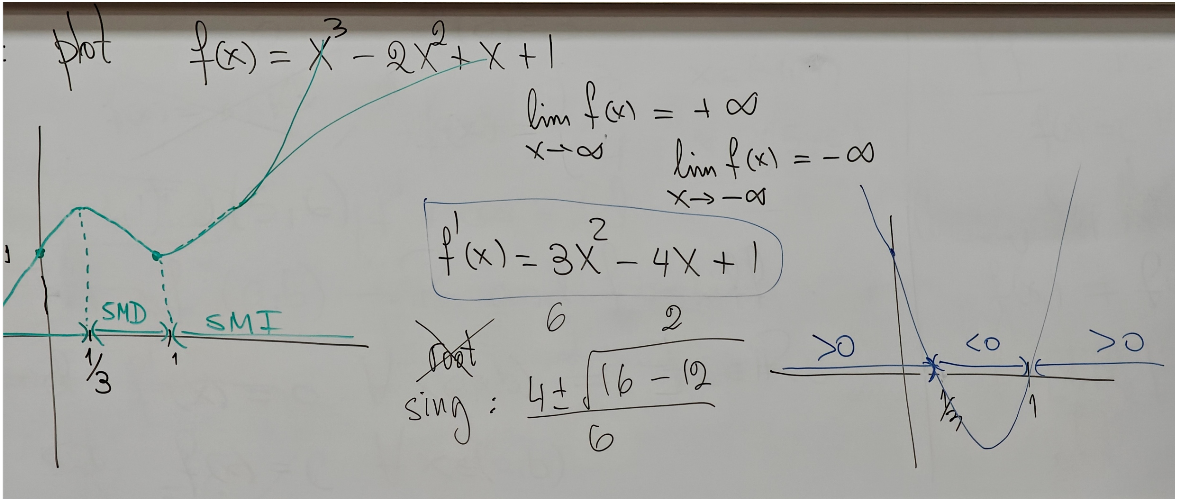 : plot f(x) = x³ - 2x² + x + 1
lim f(x) = + ∞
x→∞
lim f(x) = -∞
x→-∞
f'(x) = 3x² - 4x + 1
6 2
root
sing : 4 ± √16 - 12
6
1
SMD SMI
1/3 1
>0 <0 >0
1/3 1